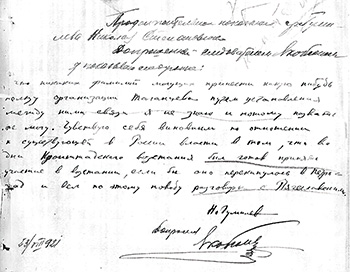 Продолжение показания гр. Гумилева Николая Степановича
Допрошенный следователем Якобсоном
я показываю следующее:
что никаких фамилий могущих принести какую нибудь
пользу организации Таганцева путем установления
между ними связи я не знаю и потому назвать
не могу. Чувствую себя виновным по отношению
к существующей в России власти в том, что в
дни Кронштадского восстания был готов принять
участие в восстании, если бы оно перекинулось в Петро-
град и вел по этому поводу разговоры с Вячеславским.
Н Гумилев
Допросил Якобсон
23/VIII 921